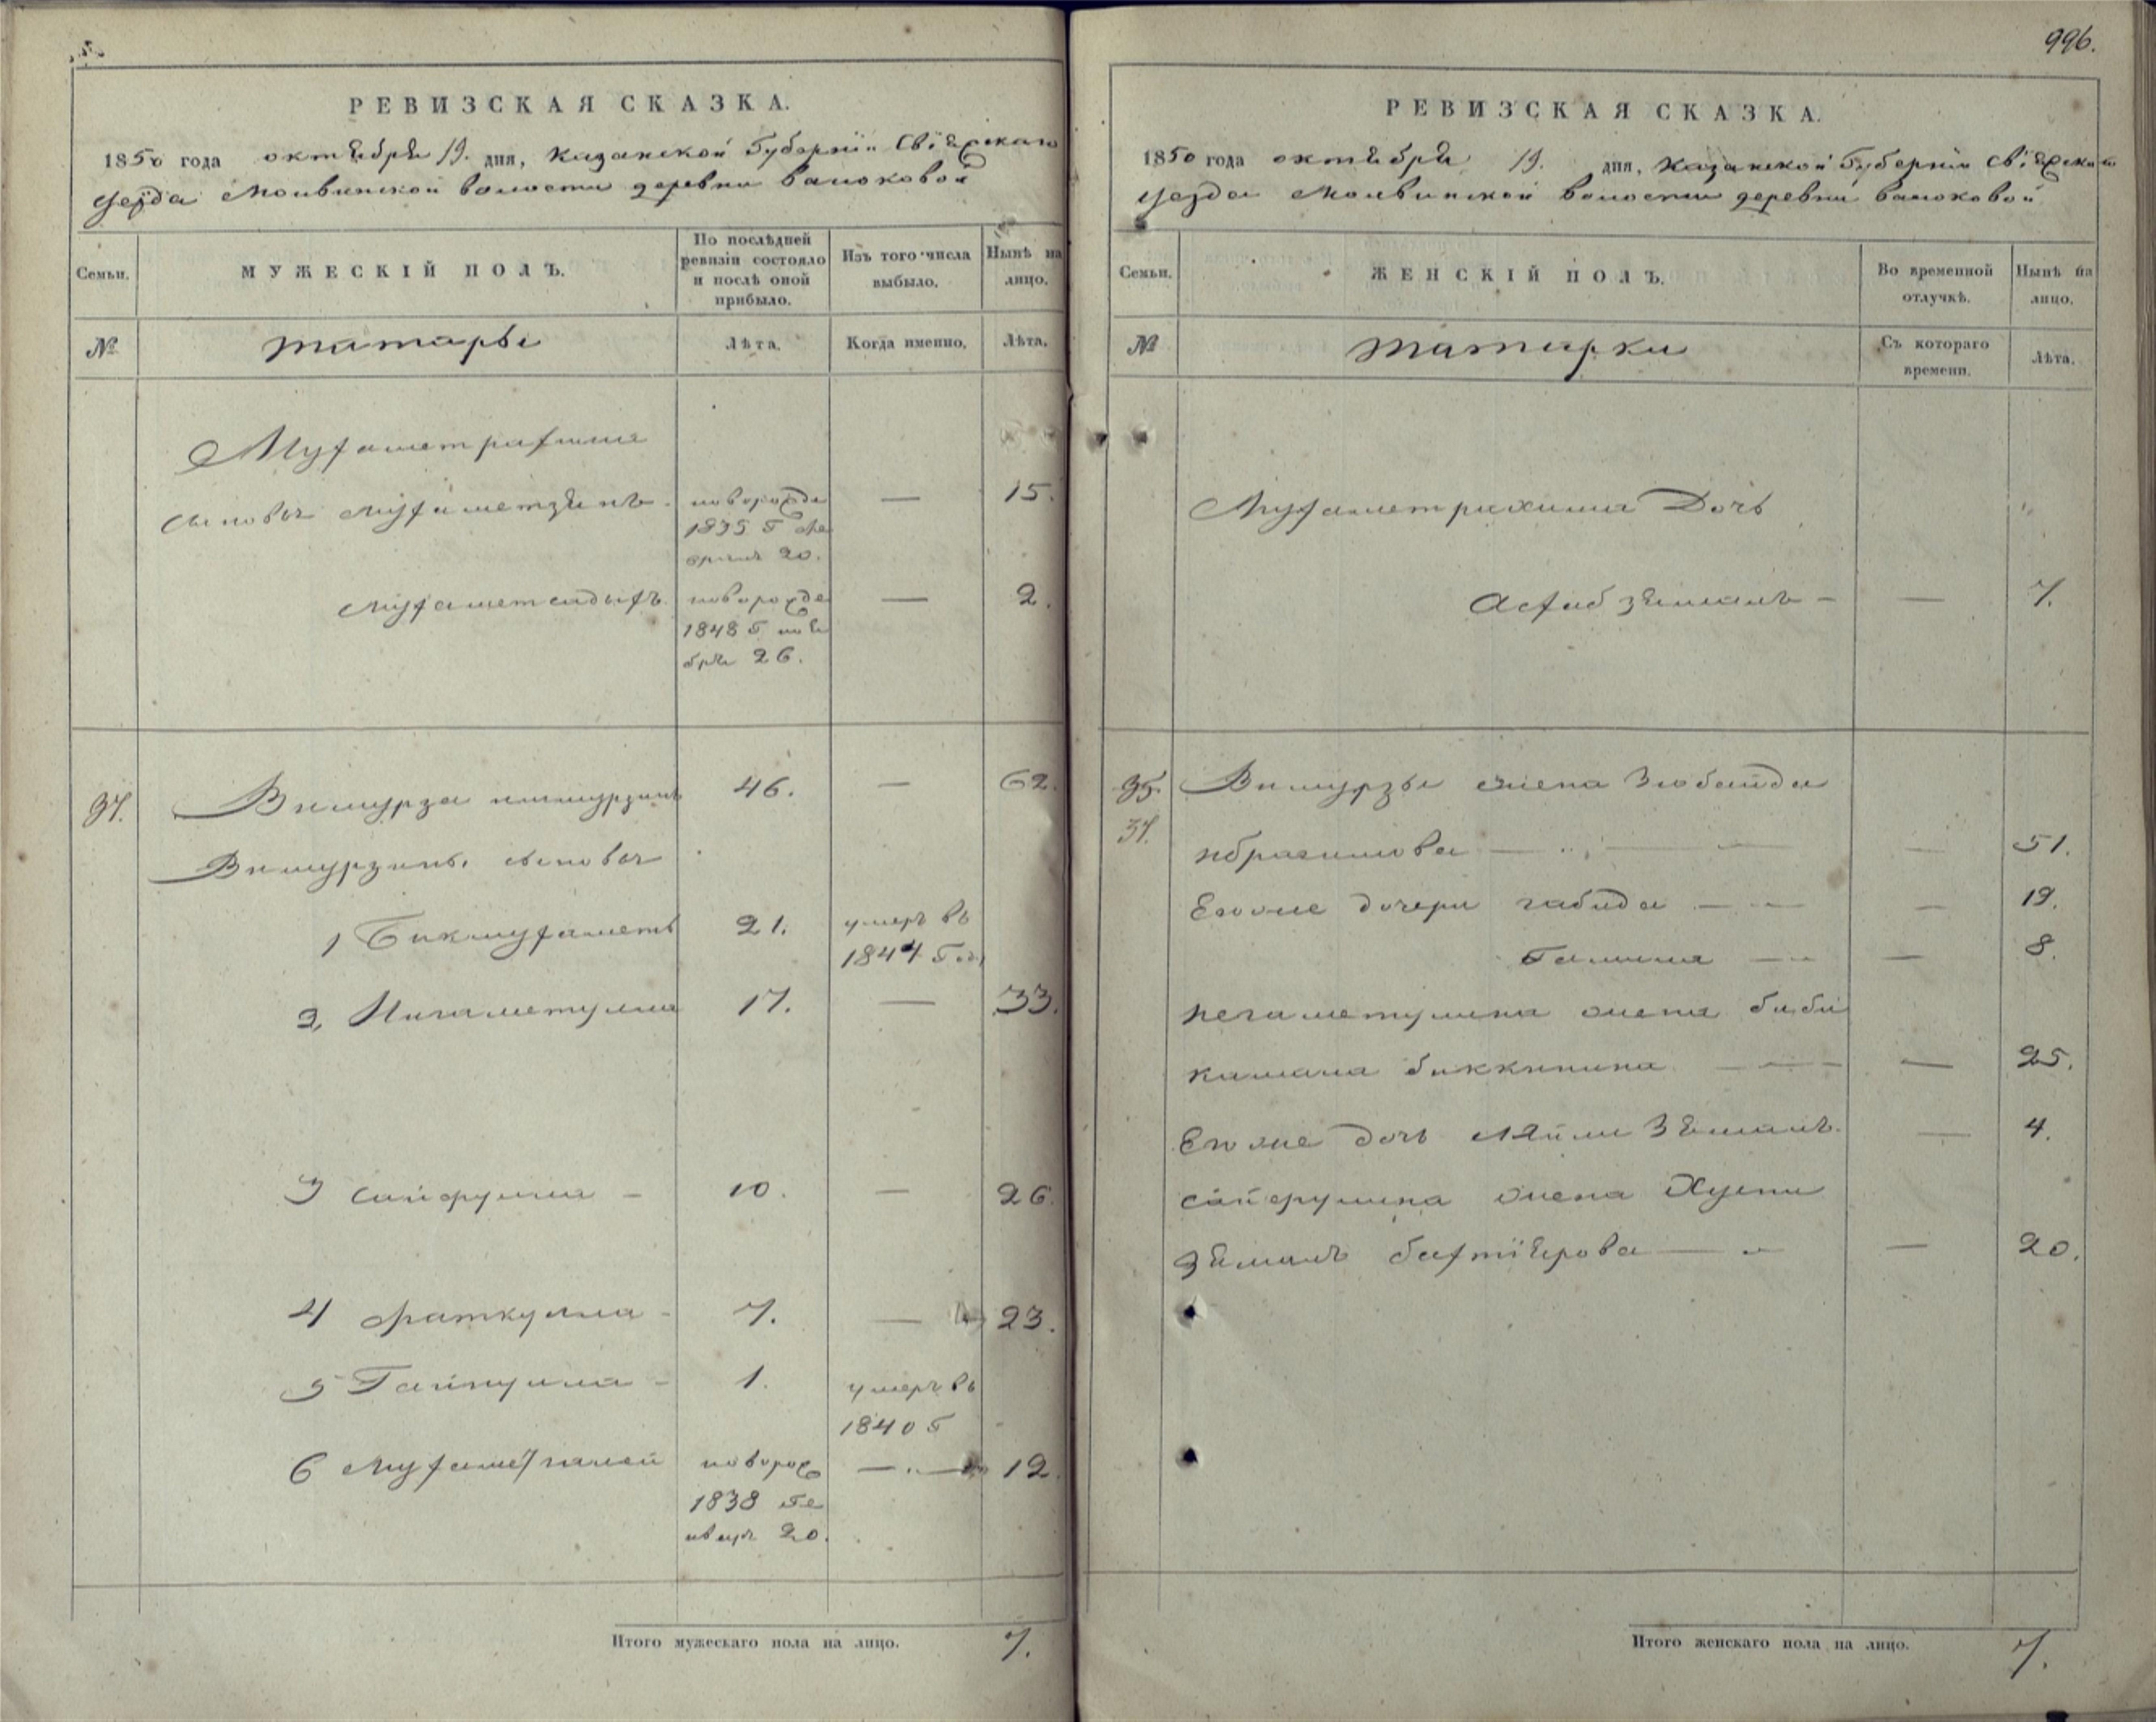 996.
РЕВИЗСКАЯ СКАЗКА.
1850 года октября 19. дня, Казанской Губернiи Свiяжскаго
уезда Молвинской волости деревни Ваюковой
Семьи.
МУЖЕСКIЙ ПОЛЪ.
По послѣдней ревизiи состояло и послѣ оной прибыло.
Изъ того числа выбыло.
Нынѣ на лицо.
№
татары
Лѣта.
Когда именно.
Лѣта.
Мухаметрахима
сыновья Мухаметзянъ новорожде — 15.
1835 Г Фе
враля 20.
Мухаметсадыхъ новорожде — 2.
1848 Г ноя
бря 26.
37. Вимурза 46. — 62.
Вимурзинъ сыновья
1 Бикмухаметъ 21. умеръ въ
1844 Г
2 Нигаметулла 17. — 33.
3 Сайфулла — 10. — 26.
4 Фаткулла 7. — 23.
5 Гайнулла 1. умеръ въ
1840 Г
6 Мухаметгалей новорож — 12.
1838 Ге
нваря 20.
Итого мужескаго пола на лицо. 7.
РЕВИЗСКАЯ СКАЗКА.
1850 года октября 19. дня, Казанской Губернiи Свiяжскаго
уезда Молвинской волости деревни Ваюковой
Семьи.
ЖЕНСКIЙ ПОЛЪ.
Во временной отлучкѣ.
Нынѣ на лицо.
№
татарки
Съ котораго времени.
Лѣта.
Мухаметрахима Дочь
— — 7.
35. Вимурзы жена Зюбайда
37. Ибрагимова — — 51.
Егоже дочери габида — — 19.
Галима — — 8.
Негаметулина жена биби
камала биккинина — — 25.
Егоже дочь Ляйли Зямалъ — 4.
Сайфулина жена Хусни
Зямалъ бахтiярова — — 20.
Итого женскаго пола на лицо. 7.